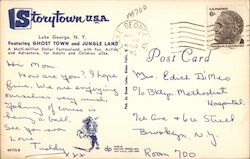 Storytown U.S.A.
Lake George, N. Y.
Featuring GHOST TOWN and JUNGLE LAND
A Multi-Million Dollar Fantasyland, with Fun, Rides
and Adventure, for Adults and Children alike.
Post Card
Hi Mom
How are you? I hope
fine. We are enjoying
ourselves very much.
Johnny of course is
having a ball.
See you
Love
Tuddy xxx
Mrs. Edith DiMeo
c/o Bklyn. Methodist
Hospital
7th Ave & 6th Street
Brooklyn, N.Y.
Room 700